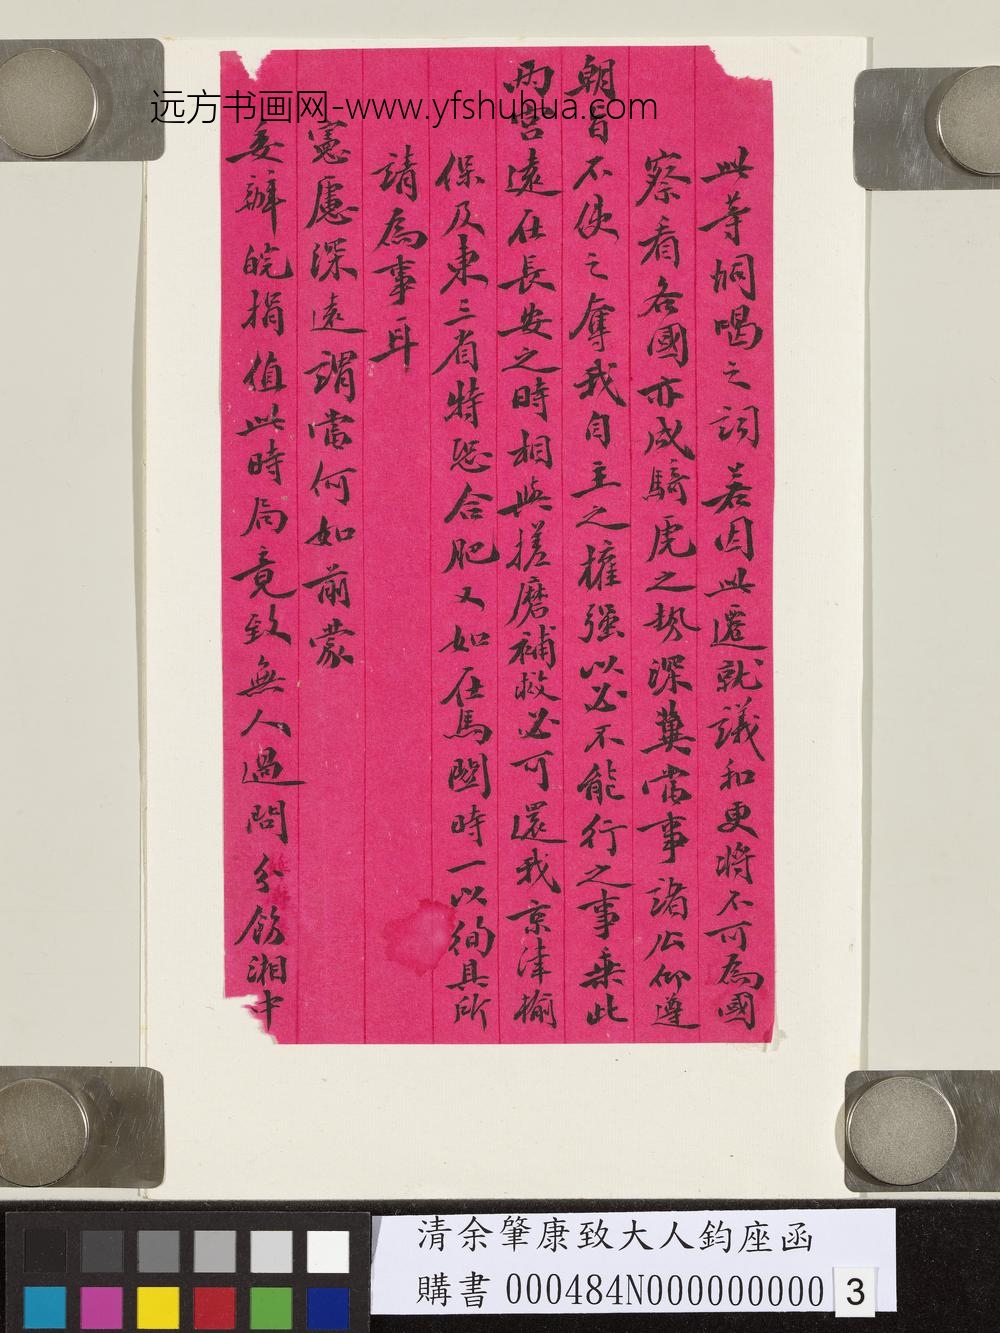 此等恫喝之詞若因此遷就議和更將不可為國
察看各國亦成騎虎之勢深冀當事諸公仰遵
朝旨不使之奪我自主之權強以必不能行之事乘此
兩宮遠在長安之時相與搓磨補救必可還我京津榆
保及東三省特恐合肥又如在馬關時一以徇具所
請為事耳
憲慮深遠謂當何如前蒙
委辦皖捐值此時局竟致無人過問分飭湘中
远方书画网-www.yfshuhua.com
清余肇康致大人鈞座函
購書 000484N000000000 3